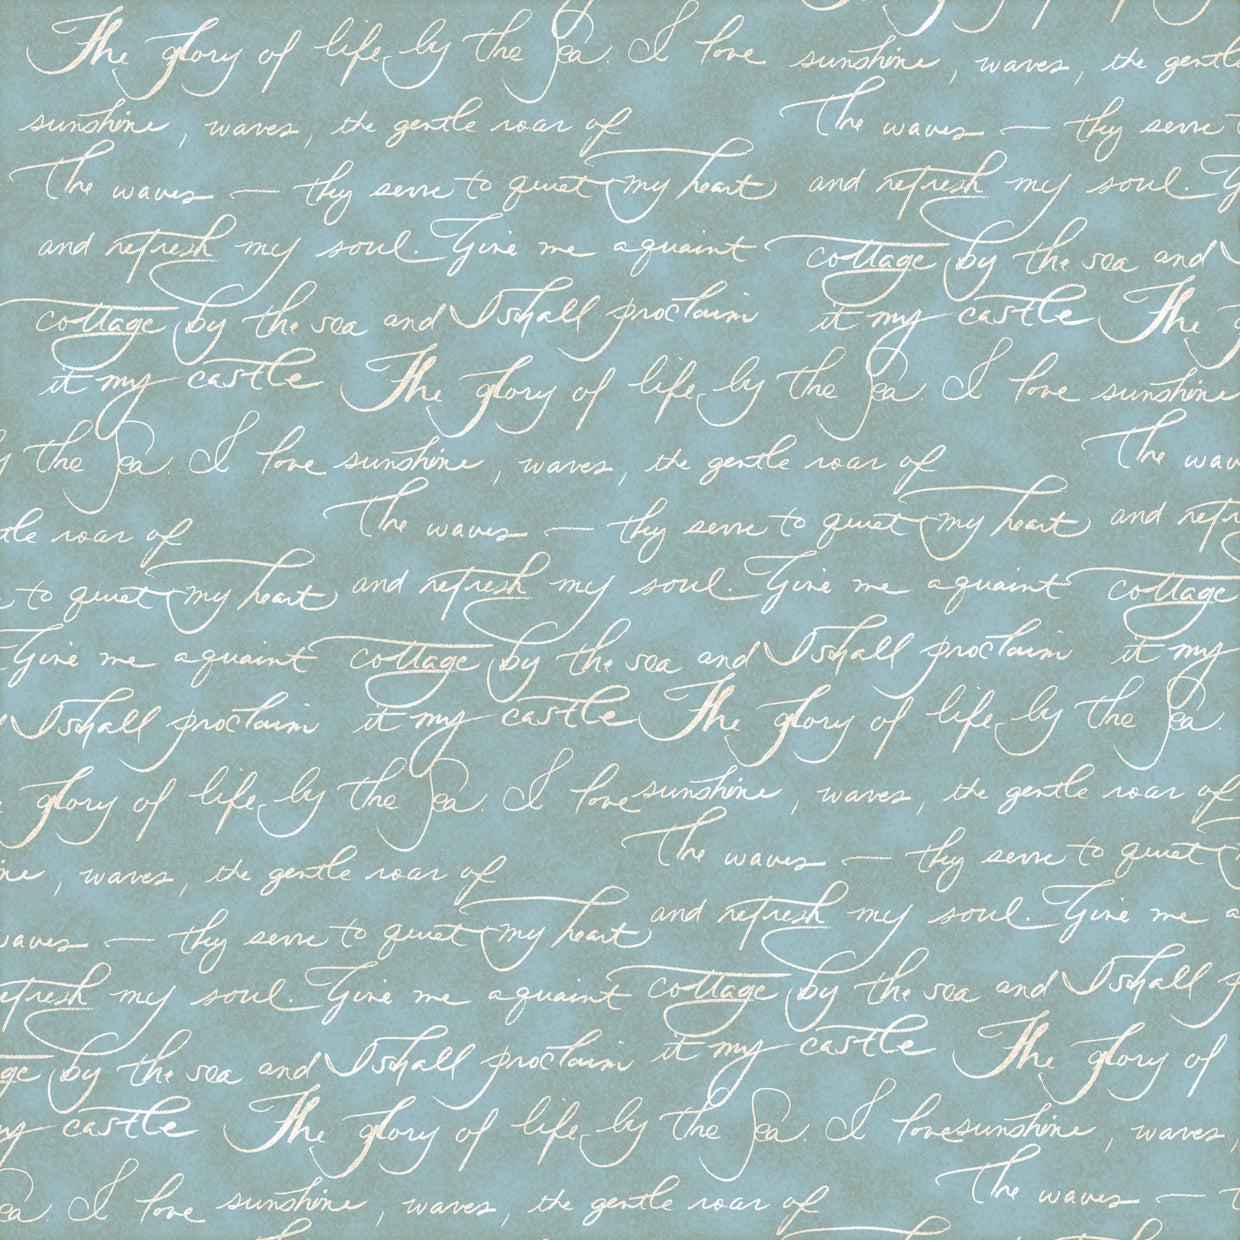 The glory of life by the Sea. I love sunshine, waves, the gentle
sunshine, waves, the gentle roar of The waves — they serve
The waves — they serve to quiet my heart and refresh my soul.
and refresh my soul. Give me a quaint cottage by the sea and
cottage by the sea and I shall proclaim it my castle The
it my castle The glory of life by the Sea. I love sunshine
the Sea. I love sunshine, waves, the gentle roar of The
roar of The waves — they serve to quiet my heart and
to quiet my heart and refresh my soul. Give me a quaint cottage
Give me a quaint cottage by the sea and I shall proclaim it my
I shall proclaim it my castle The glory of life by the Sea.
glory of life by the Sea. I love sunshine, waves, the gentle roar of
, waves, the gentle roar of The waves — they serve to quiet
— they serve to quiet my heart and refresh my soul. Give me a
my soul. Give me a quaint cottage by the sea and I shall
by the sea and I shall proclaim it my castle The glory of
castle The glory of life by the Sea. I love sunshine, waves,
I love sunshine, waves, the gentle roar of The waves —